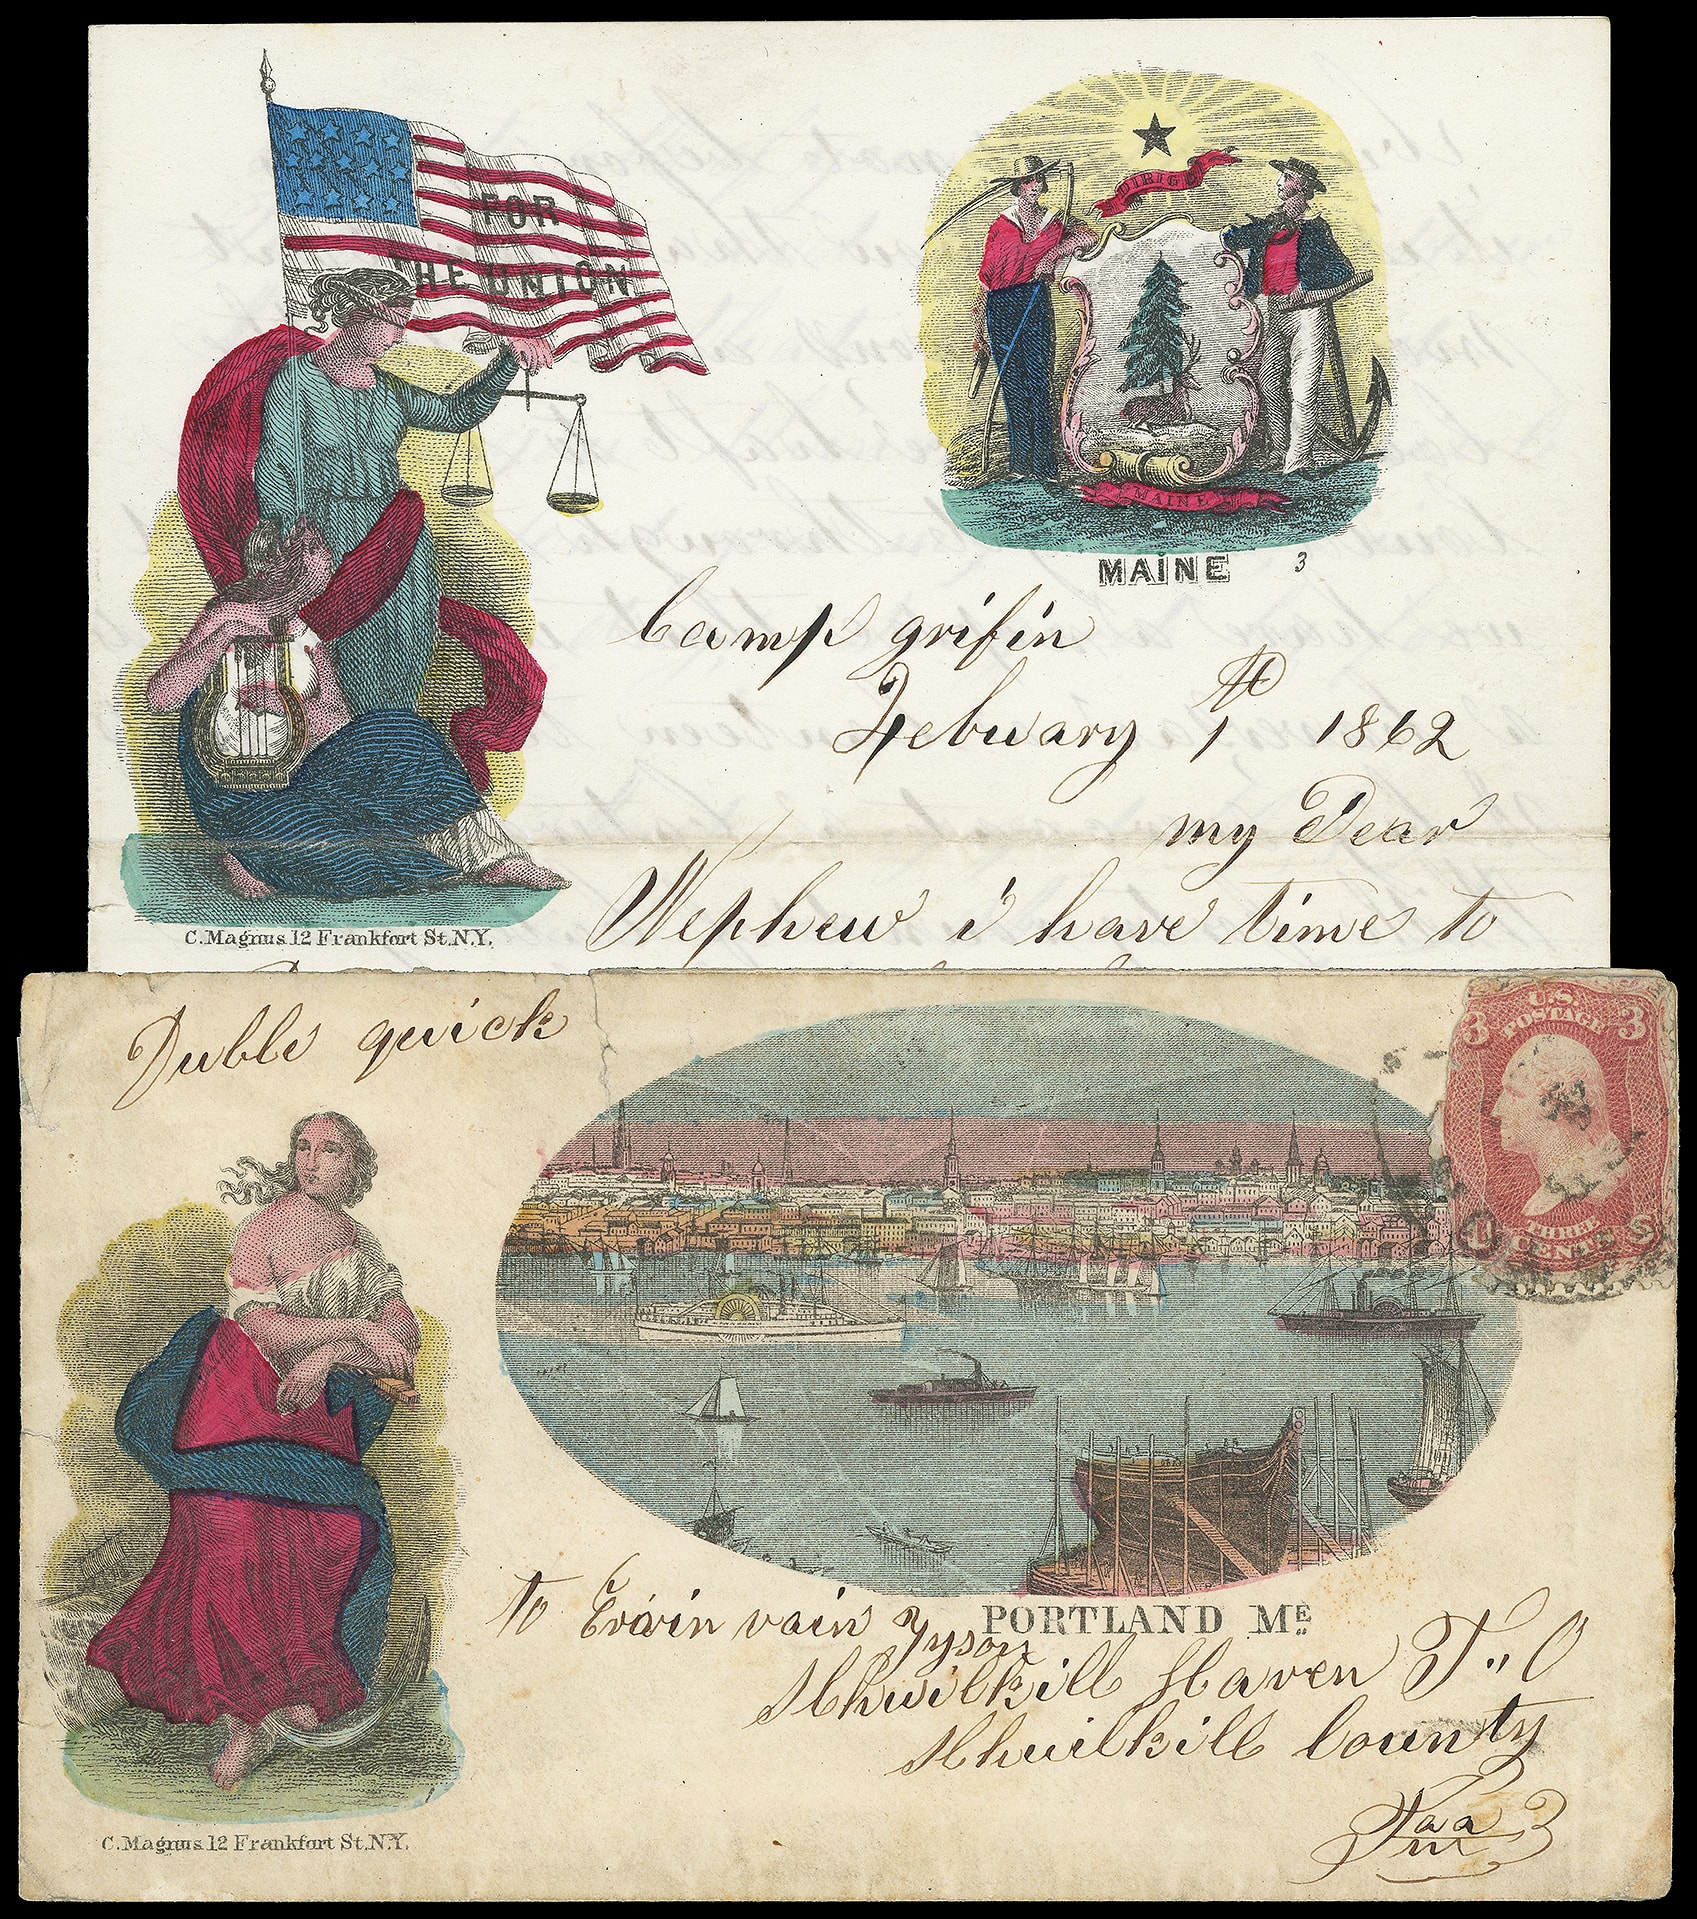 FOR
THE UNION
DIRIGO
MAINE
MAINE 3
C. Magnus. 12 Frankfort St. N.Y.
Camp grifin
Febuary 1th 1862
my Dear
Nephew i have time to
Duble quick
U.S. POSTAGE
3 3
THREE CENTS
PORTLAND ME
to Ervin vain Tyson
Shuilkill Haven P.. O
Shuilkill County
Paa
C. Magnus 12 Frankfort St. N.Y.